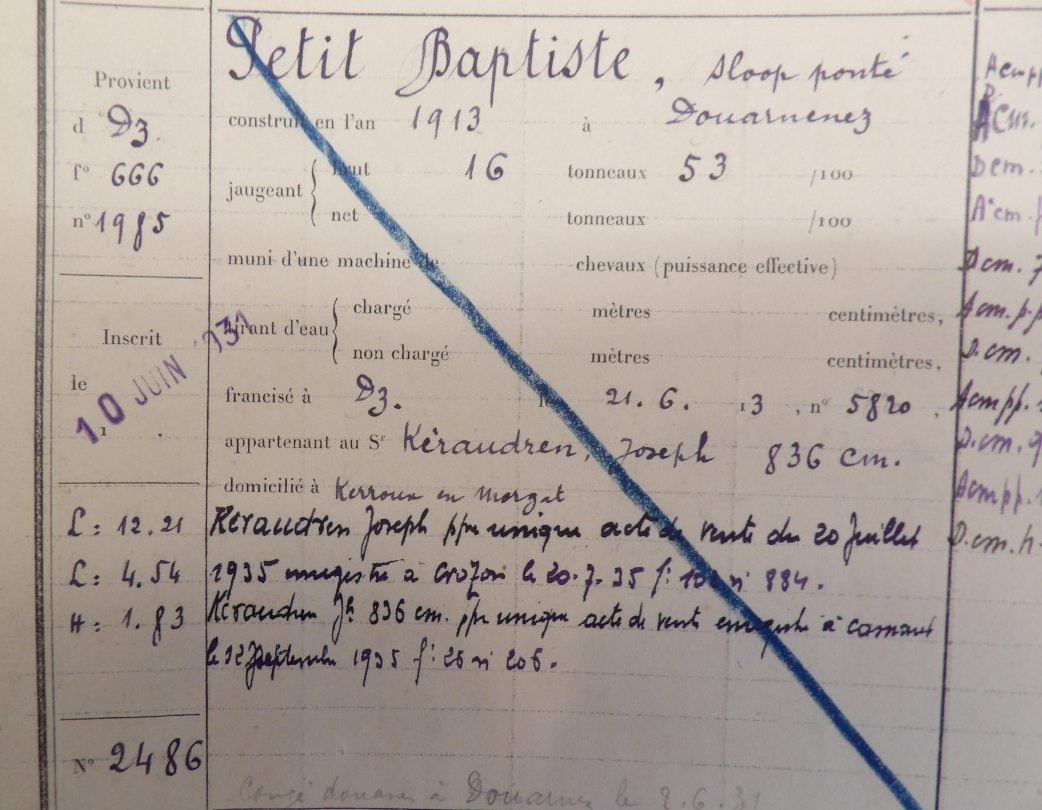 Provient
d Dz.
fº 666
nº 1985
Inscrit
le
10 JUIN 1931
1
L : 12.21
L : 4.54
H : 1.83
Nº 2486
Petit Baptiste, sloop ponté
construit en l'an 1913 à Douarnenez
jaugeant { brut 16 tonneaux 53 /100
net tonneaux /100
muni d'une machine de chevaux (puissance effective)
tirant d'eau { chargé mètres centimètres,
non chargé mètres centimètres,
francisé à Dz. le 21. 6. 13, nº 5820,
appartenant au Sr Kéraudren, Joseph 836 cm.
domicilié à Kerroux en Morgat
Keraudren Joseph ppre unique acte de vente du 20 Juillet
1935 enregistré à Crozon le 20-7-35 fº nº 884.
Keraudren Jh 836 cm. ppre unique acte de vente enregistré à Camaret
le 12 Septembre 1935 fº 26 nº 206.
Congé douanes à Douarnez le 2.6.31
Acmpp
D.
Acm.
Dcm.
Acm.
Dcm. 7
Acm. p.p
D.cm.
Acmpp.
D.cm. 9
Acmpp.
D.cm. h